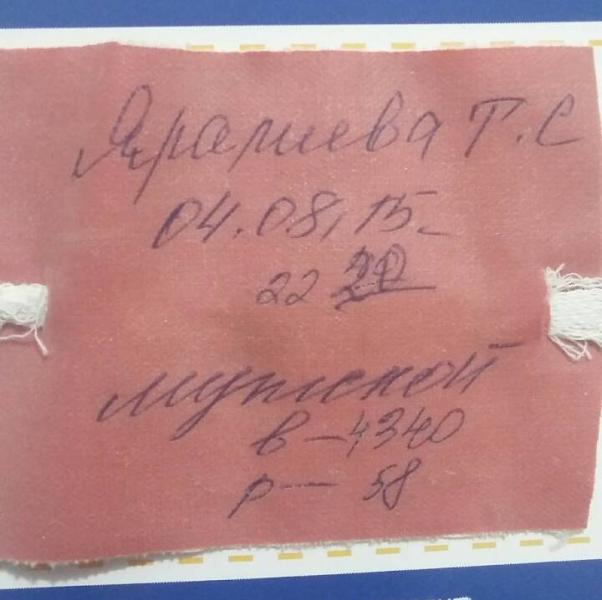 Яралиева Т.С
04.08.15-
22 20
мужской
в - 4,340
р - 58